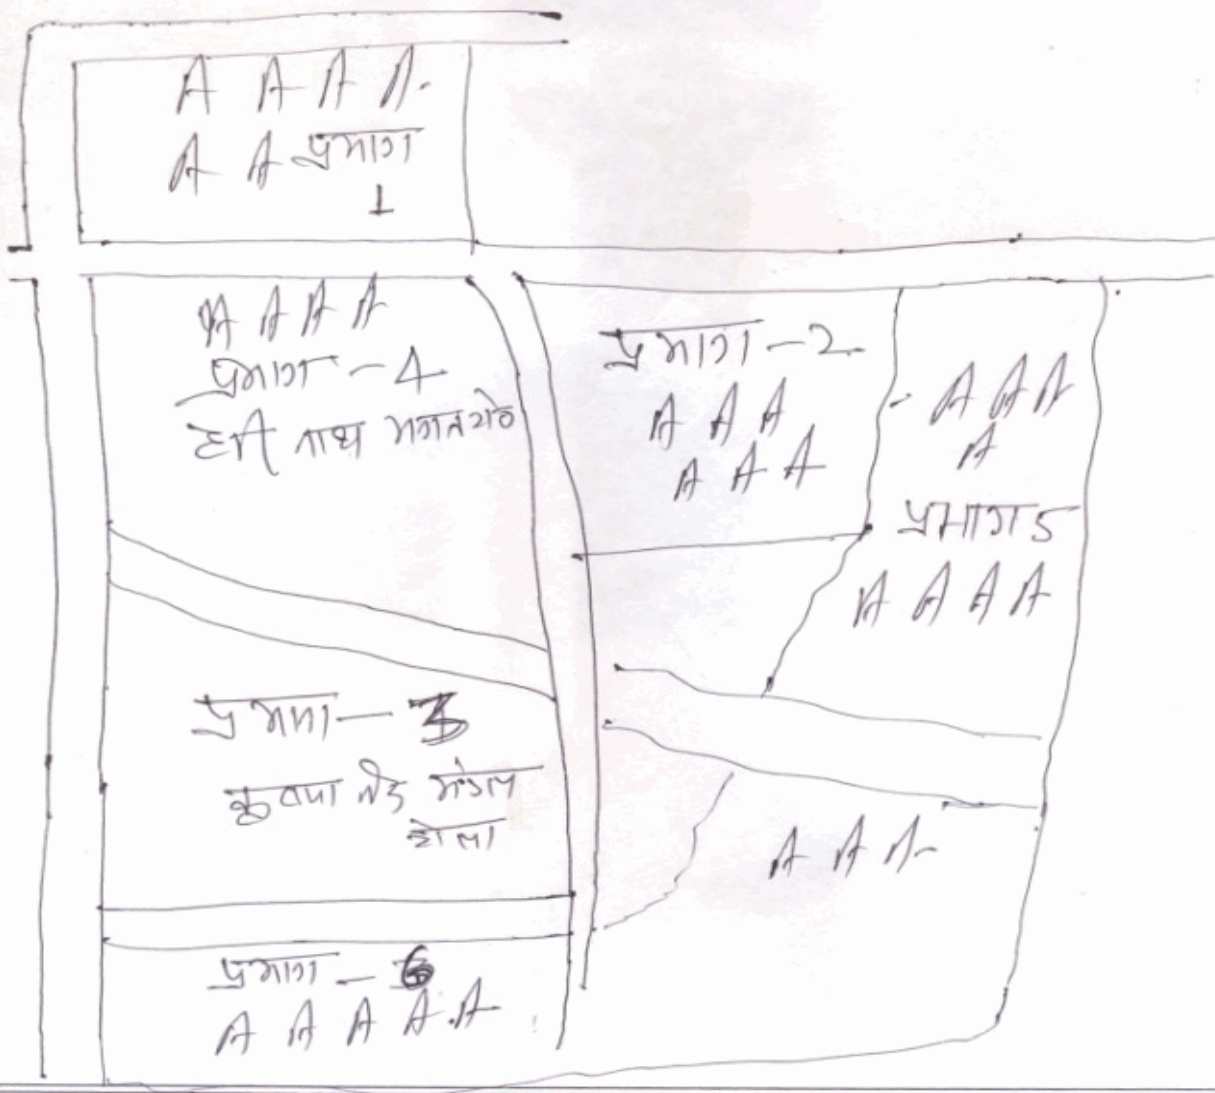 A A A A.
A A प्रभाग
1
A A A A
प्रभाग - 4
हरी नाथ
प्रभाग - 2
A A A
A A A
A A A
A
प्रभाग 5
A A A A
प्रभाग - 3
मंडल
टोला
A A A
प्रभाग - 6
A A A A A